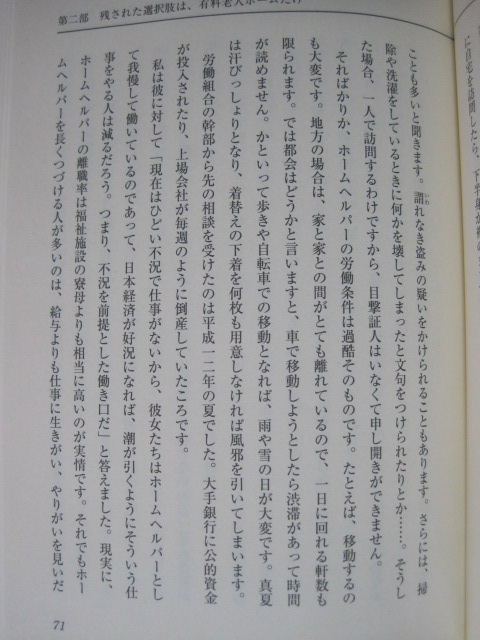 第二部　残された選択肢は、有料老人ホームだけ
ことも多いと聞きます。謂れなき盗みの疑いをかけられることもあります。さらには、掃
除や洗濯をしているときに何かを壊してしまったと文句をつけられたりとか……。そうし
た場合、一人で訪問するわけですから、目撃証人はいなくて申し開きができません。
そればかりか、ホームヘルパーの労働条件は過酷そのものです。たとえば、移動するの
も大変です。地方の場合は、家と家との間がとても離れているので、一日に回れる軒数も
限られます。では都会はどうかと言いますと、車で移動しようとしたら渋滞があって時間
が読めません。かといって歩きや自転車での移動となれば、雨や雪の日が大変です。真夏
は汗びっしょりとなり、着替えの下着を何枚も用意しなければ風邪を引いてしまいます。
労働組合の幹部から先の相談を受けたのは平成一二年の夏でした。大手銀行に公的資金
が投入されたり、上場会社が毎週のように倒産していたころです。
私は彼に対して「現在はひどい不況で仕事がないから、彼女たちはホームヘルパーとし
て我慢して働いているのであって、日本経済が好況になれば、潮が引くようにそういう仕
事をやる人は減るだろう。つまり、不況を前提とした働き口だ」と答えました。現実に、
ホームヘルパーの離職率は福祉施設の寮母よりも相当に高いのが実情です。それでもホー
ムヘルパーを長くつづける人が多いのは、給与よりも仕事に生きがい、やりがいを見いだ
71